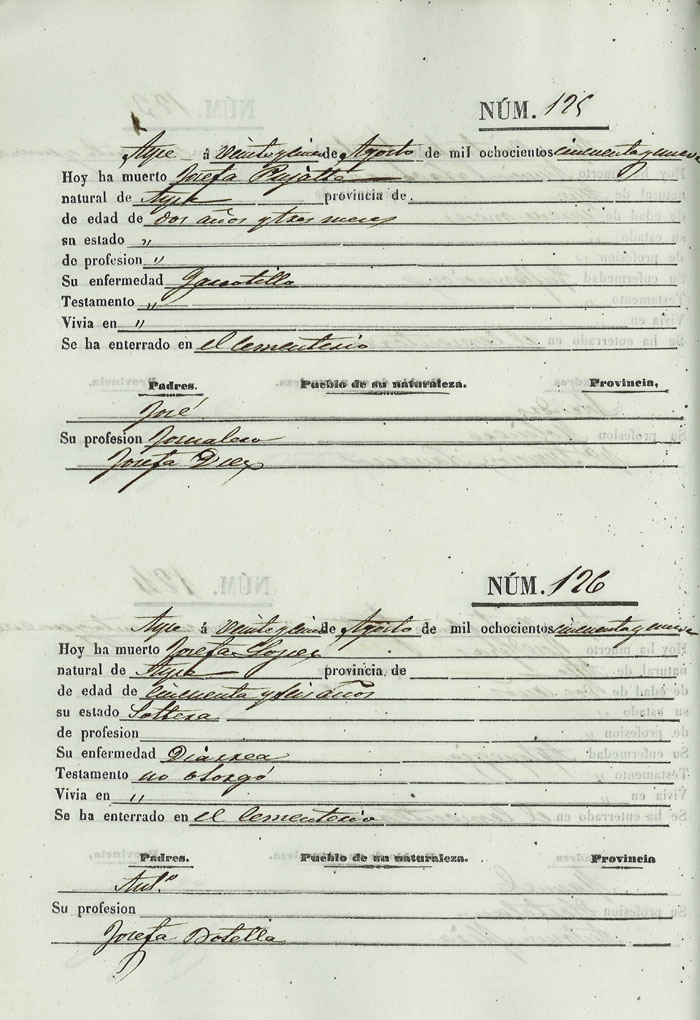 NÚM. 125
Aspe á veinte y cinco de Agosto de mil ochocientos cincuenta y nueve
Hoy ha muerto Josefa Pujalte
natural de Aspe provincia de
de edad de dos años y tres meses
su estado "
de profesion "
Su enfermedad Garrotillo
Testamento "
Vivia en "
Se ha enterrado en el Cementerio
Padres. Pueblo de su naturaleza. Provincia,
José
Su profesion Jornalero
Josefa Diez
NÚM. 126
Aspe á veinte y cinco de Agosto de mil ochocientos cincuenta y nueve
Hoy ha muerto Josefa Lopez
natural de Aspe provincia, de
de edad de Cincuenta y seis años
su estado Soltera
de profesion
Su enfermedad Diarrea
Testamento no otorgó
Vivia en "
Se ha enterrado en el Cementerio
Padres. Pueblo de su naturaleza. Provincia
Ant.º
Su profesion
Josefa Botella